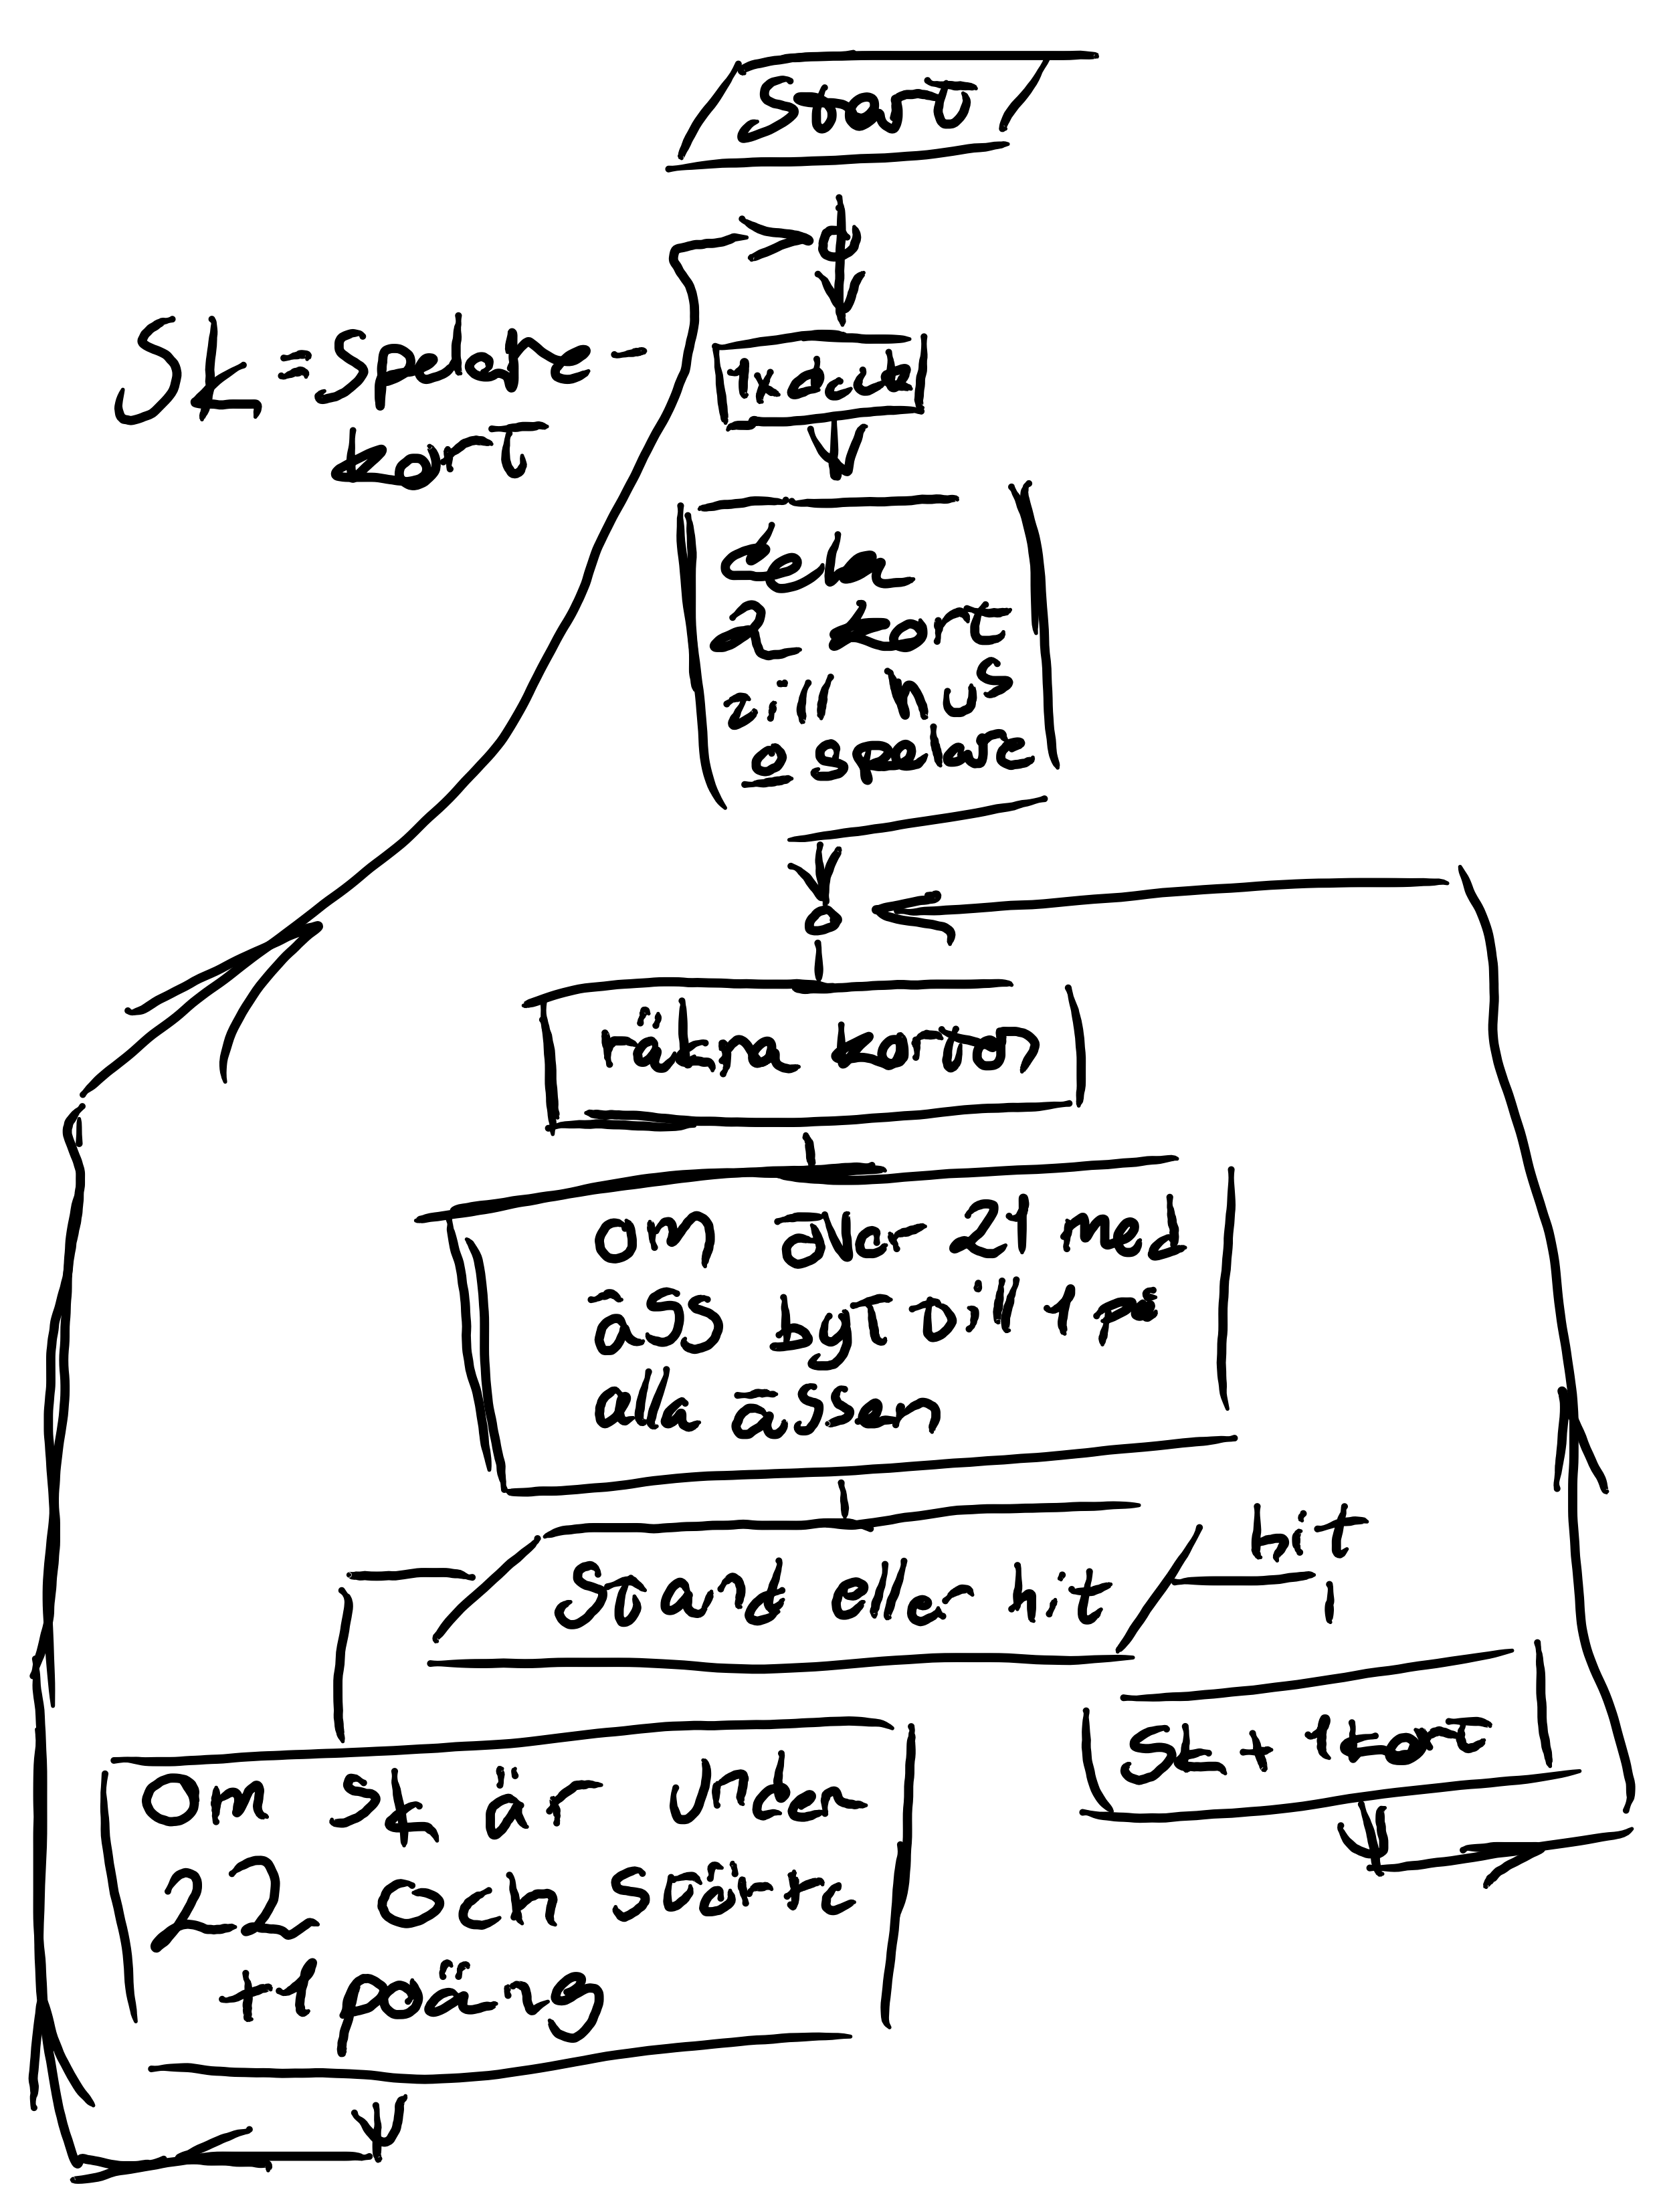 Start
Sk = Spelare-
kort
1x deck
dela
2 kort
till hus
o spelare
räkna korten
om över 21 med
äss byt till 1 på
alla ässen
Stand eller hit
hit
Sk + 1 kort
Om Sk är under
22 och större
+1 poäng